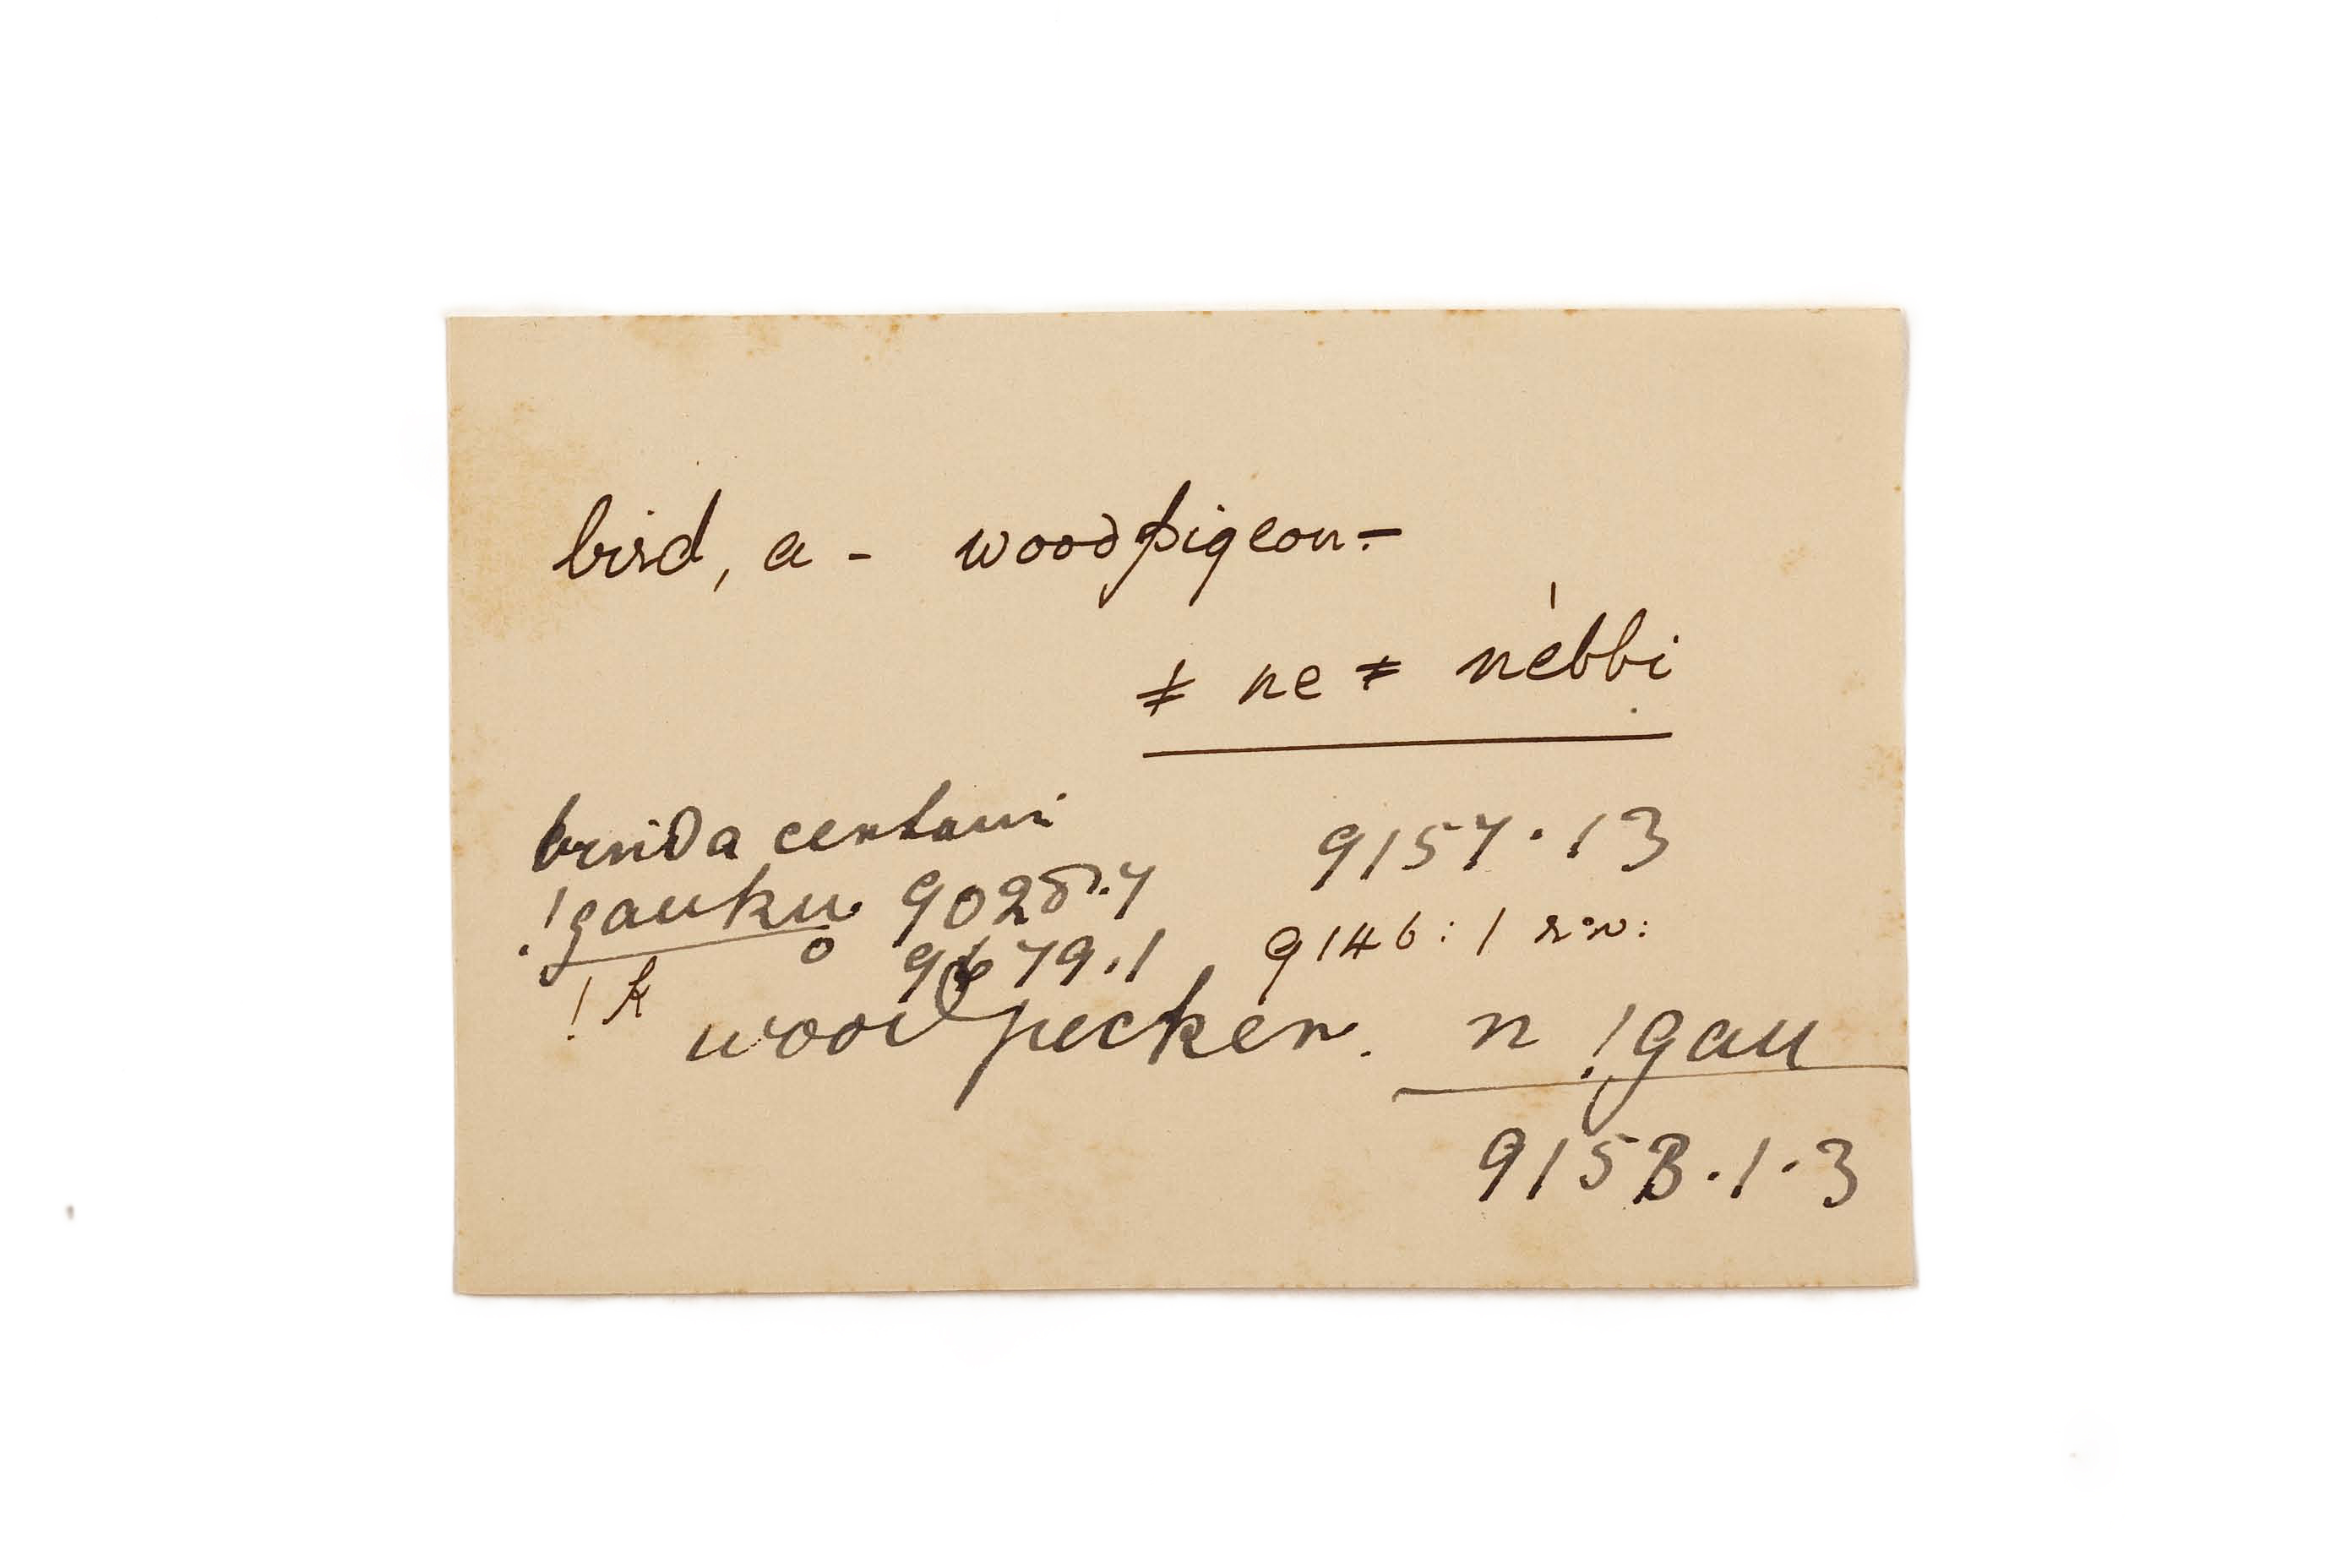 bird, a - woodpigeon -
ǂ ne ǂ nébbi
bird a certain 9157.13
!gauku 9028.7
9679.1 9146:1 rev:
!k
woodpecker. n !gau
9158.1.3